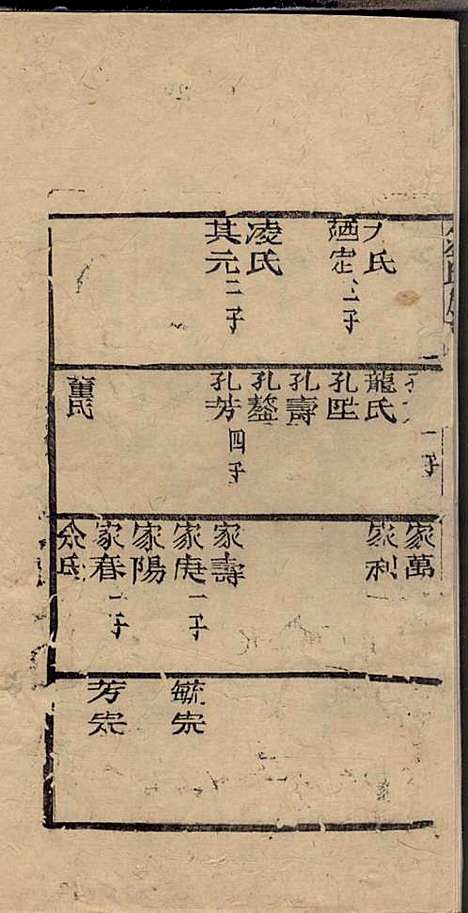 氏
廼定三子
凌氏
其元二子
一子
龍氏
孔坒
孔壽
孔鏊
孔芳四子
董氏
家萬
家利
家壽
家庚一子
家陽
家春一子
余氏
毓宗
芳宗